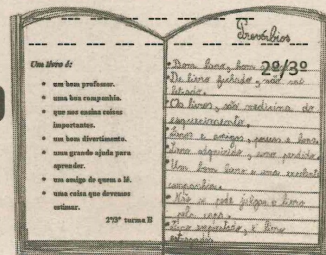 Um livro é:
um bom professor.
uma boa companhia.
que nos ensina coisas
importantes.
um bom divertimento.
uma grande ajuda para
aprender.
um amigo de quem o lê.
uma coisa que devemos
estimar.
2º/3º turma B
Provérbios
2º/3º
Bom livro, bom
De livro fechado, não sai
letrado.
Os livros, são medicina do
esquecimento.
Livros e amigos, poucos e bons.
Livro emprestado, livro
Um bom livro é uma excelente
companhia.
Não se pode julgar o livro
pela capa.
Livro emprestado, é livro
estragado.